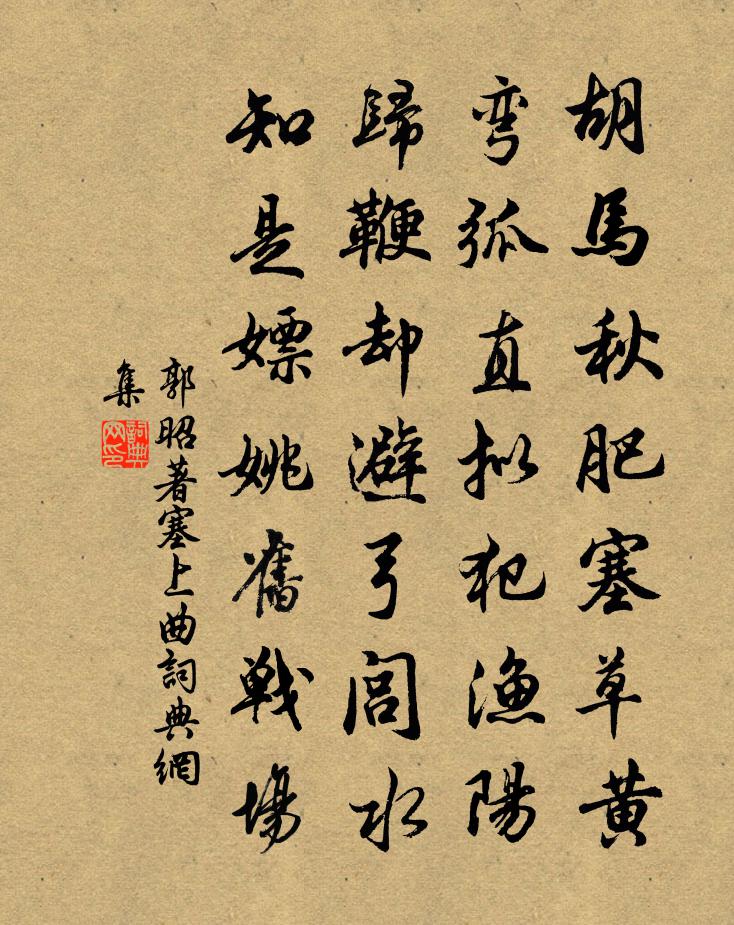 胡馬秋肥塞草黄
彎弧直拟犯漁陽
歸鞭却避弓閭水
知是嫖姚舊戰場
郭昭著塞上曲詞典網
集
詞典網印